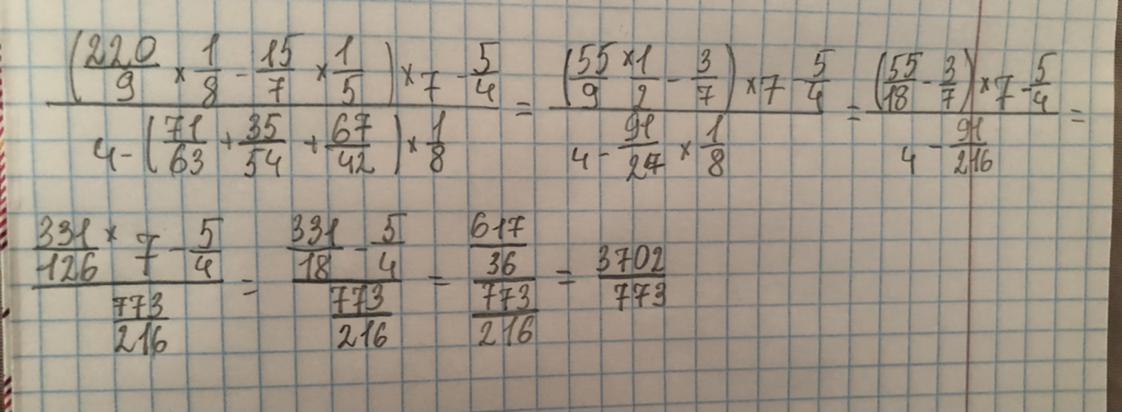 (220/9 × 1/8 - 15/7 × 1/5) × 7 - 5/4 / 4 - (71/63 + 35/54 + 67/42) × 1/8 = (55/9 × 1/2 - 3/7) × 7 - 5/4 / 4 - 91/27 × 1/8 = (55/18 - 3/7) × 7 - 5/4 / 4 - 91/216 =
331/126 × 7 - 5/4 / 773/216 = 331/18 - 5/4 / 773/216 = 617/36 / 773/216 = 3702/773